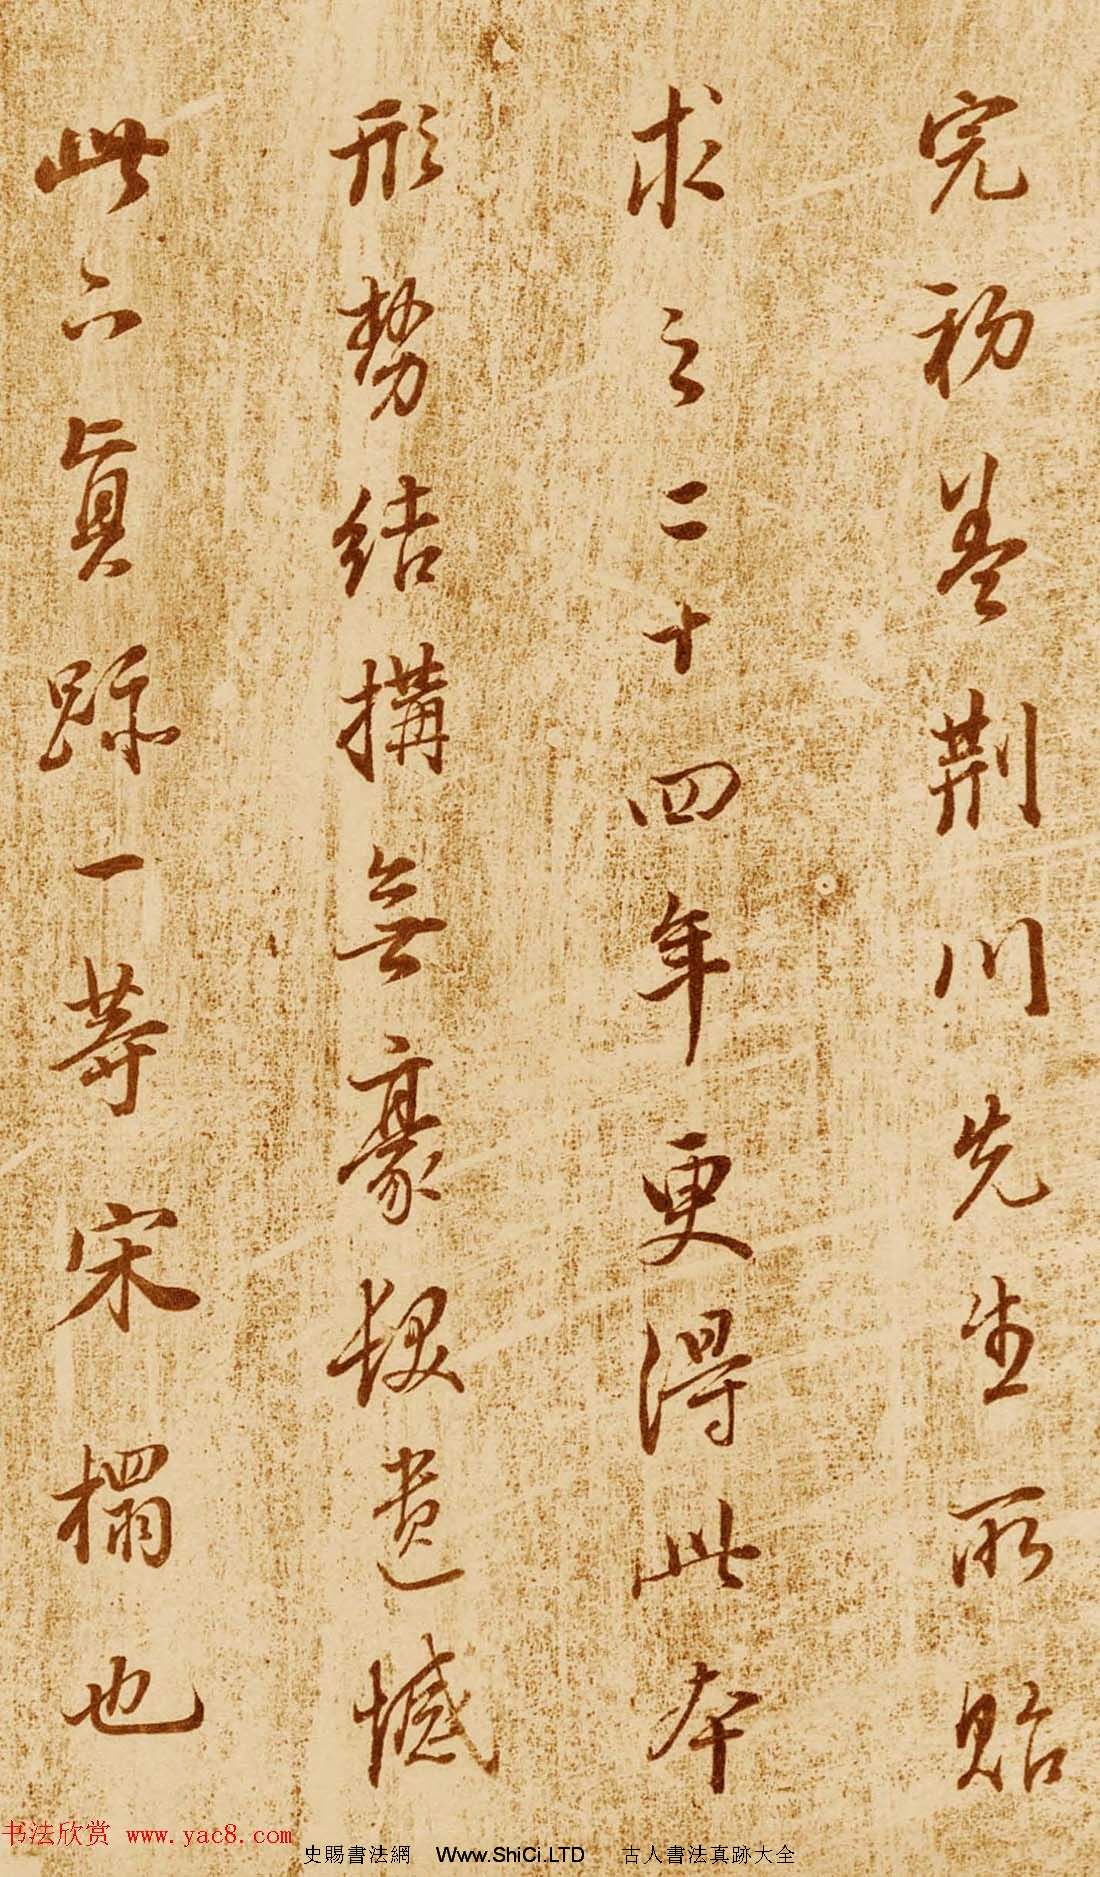 完初董荆川先生所貽
求之二十四年更得此本
形勢結搆無豪髮遺憾
此下真跡一等宋榻也
书法欣赏 www.yac8.com
史賜書法網 Www.ShiCi.LTD 古人書法真跡大全